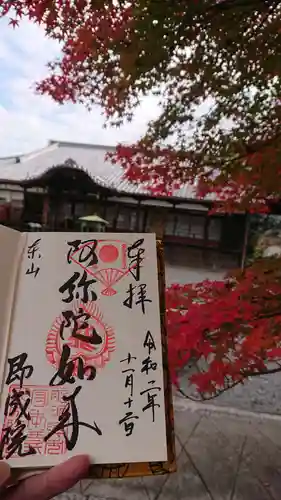 奉拝
令和二年
十一月十二日
阿弥陀如来
東山
即成院